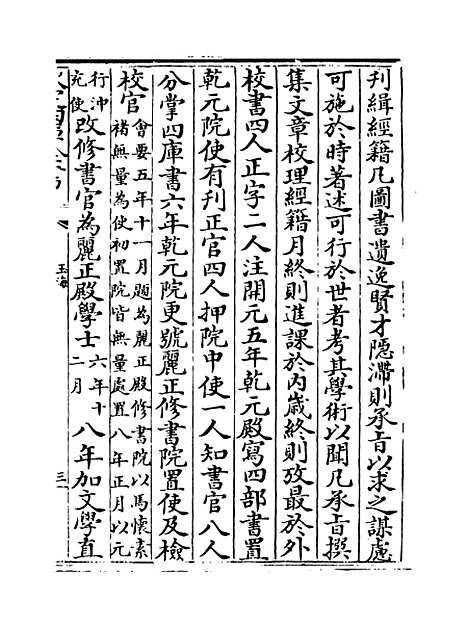 刋緝經籍凡圖書遺逸賢才隱滯則承旨以求之謀慮
可施於時著述可行於世者考其學術以聞凡承旨撰
集文章校理經籍月終則進課於内歲終則攷最於外
校書四人正字二人注開元五年乾元殿寫四部書置
乾元院使有刋正官四人押院中使一人知書官八人
分掌四庫書六年乾元院更號麗正修書院置使及檢
校官會要五年十一月題為麗正殿修書院以馬懷素
褚無量為使初置院皆無量處置八年正月以元
行沖
充使改修書官為麗正殿學士六年十
二月八年加文學直
玉海
三